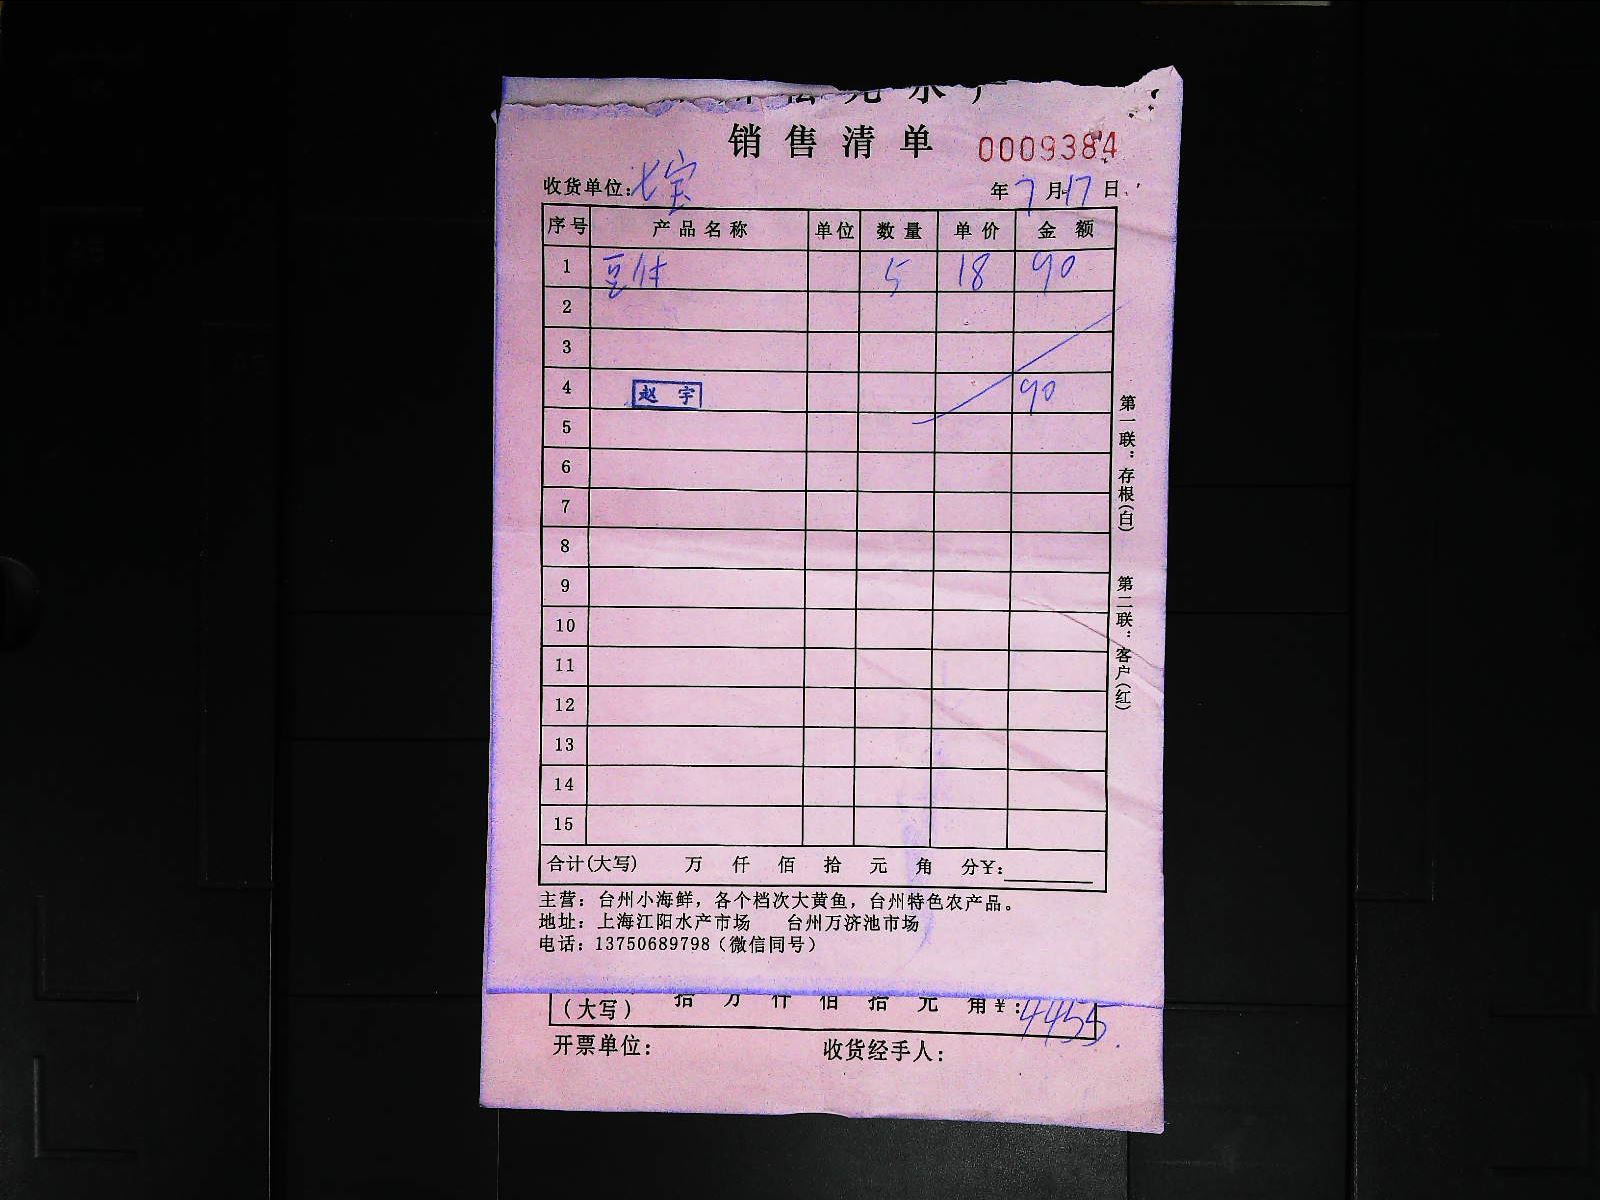 水产
销售清单 0009384
收货单位：七宝 年7月17日
序号 产品名称 单位 数量 单价 金额
1 豆付 5 18 90
2
3
4 赵宇 90
5
6
7
8
9
10
11
12
13
14
15
合计(大写) 万 仟 佰 拾 元 角 分¥：
主营：台州小海鲜，各个档次大黄鱼，台州特色农产品。
地址：上海江阳水产市场 台州万济池市场
电话：13750689798（微信同号）
第一联：存根(白) 第二联：客户(红)
(大写) 拾 万 仟 佰 拾 元 角¥：4455.
开票单位： 收货经手人：